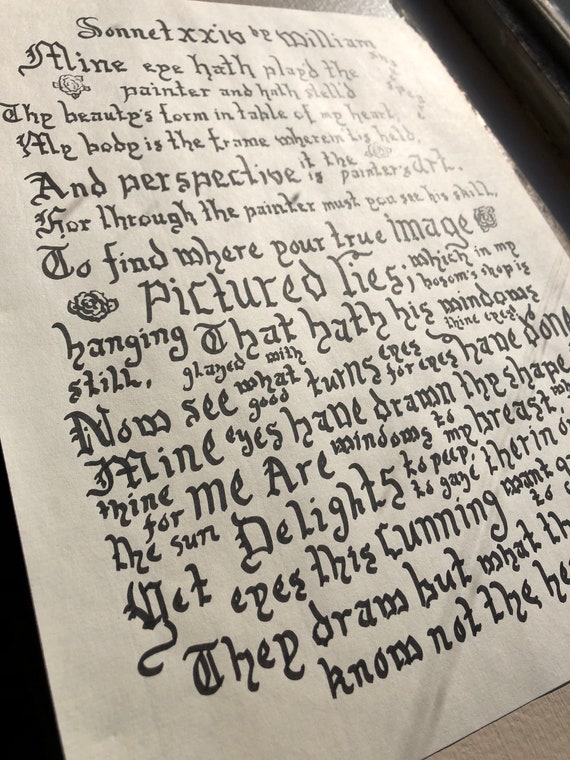 Sonnet xxiv by William
Shakespeare
Mine eye hath play'd the
painter and hath stell'd
Thy beauty's form in table of my heart;
My body is the frame wherein tis held,
And perspective it is the painter's art.
For through the painter must you see his skill,
To find where your true image
pictured lies; which in my bosom's shop is
hanging still, That hath his windows
glazed with thine eyes.
Now see what good turns eyes for eyes have done
Mine eyes have drawn thy shape,
thine for me Are windows to my breast,
the sun Delights to peep, to gaze therin
Yet eyes this cunning want
They draw but what
know not the